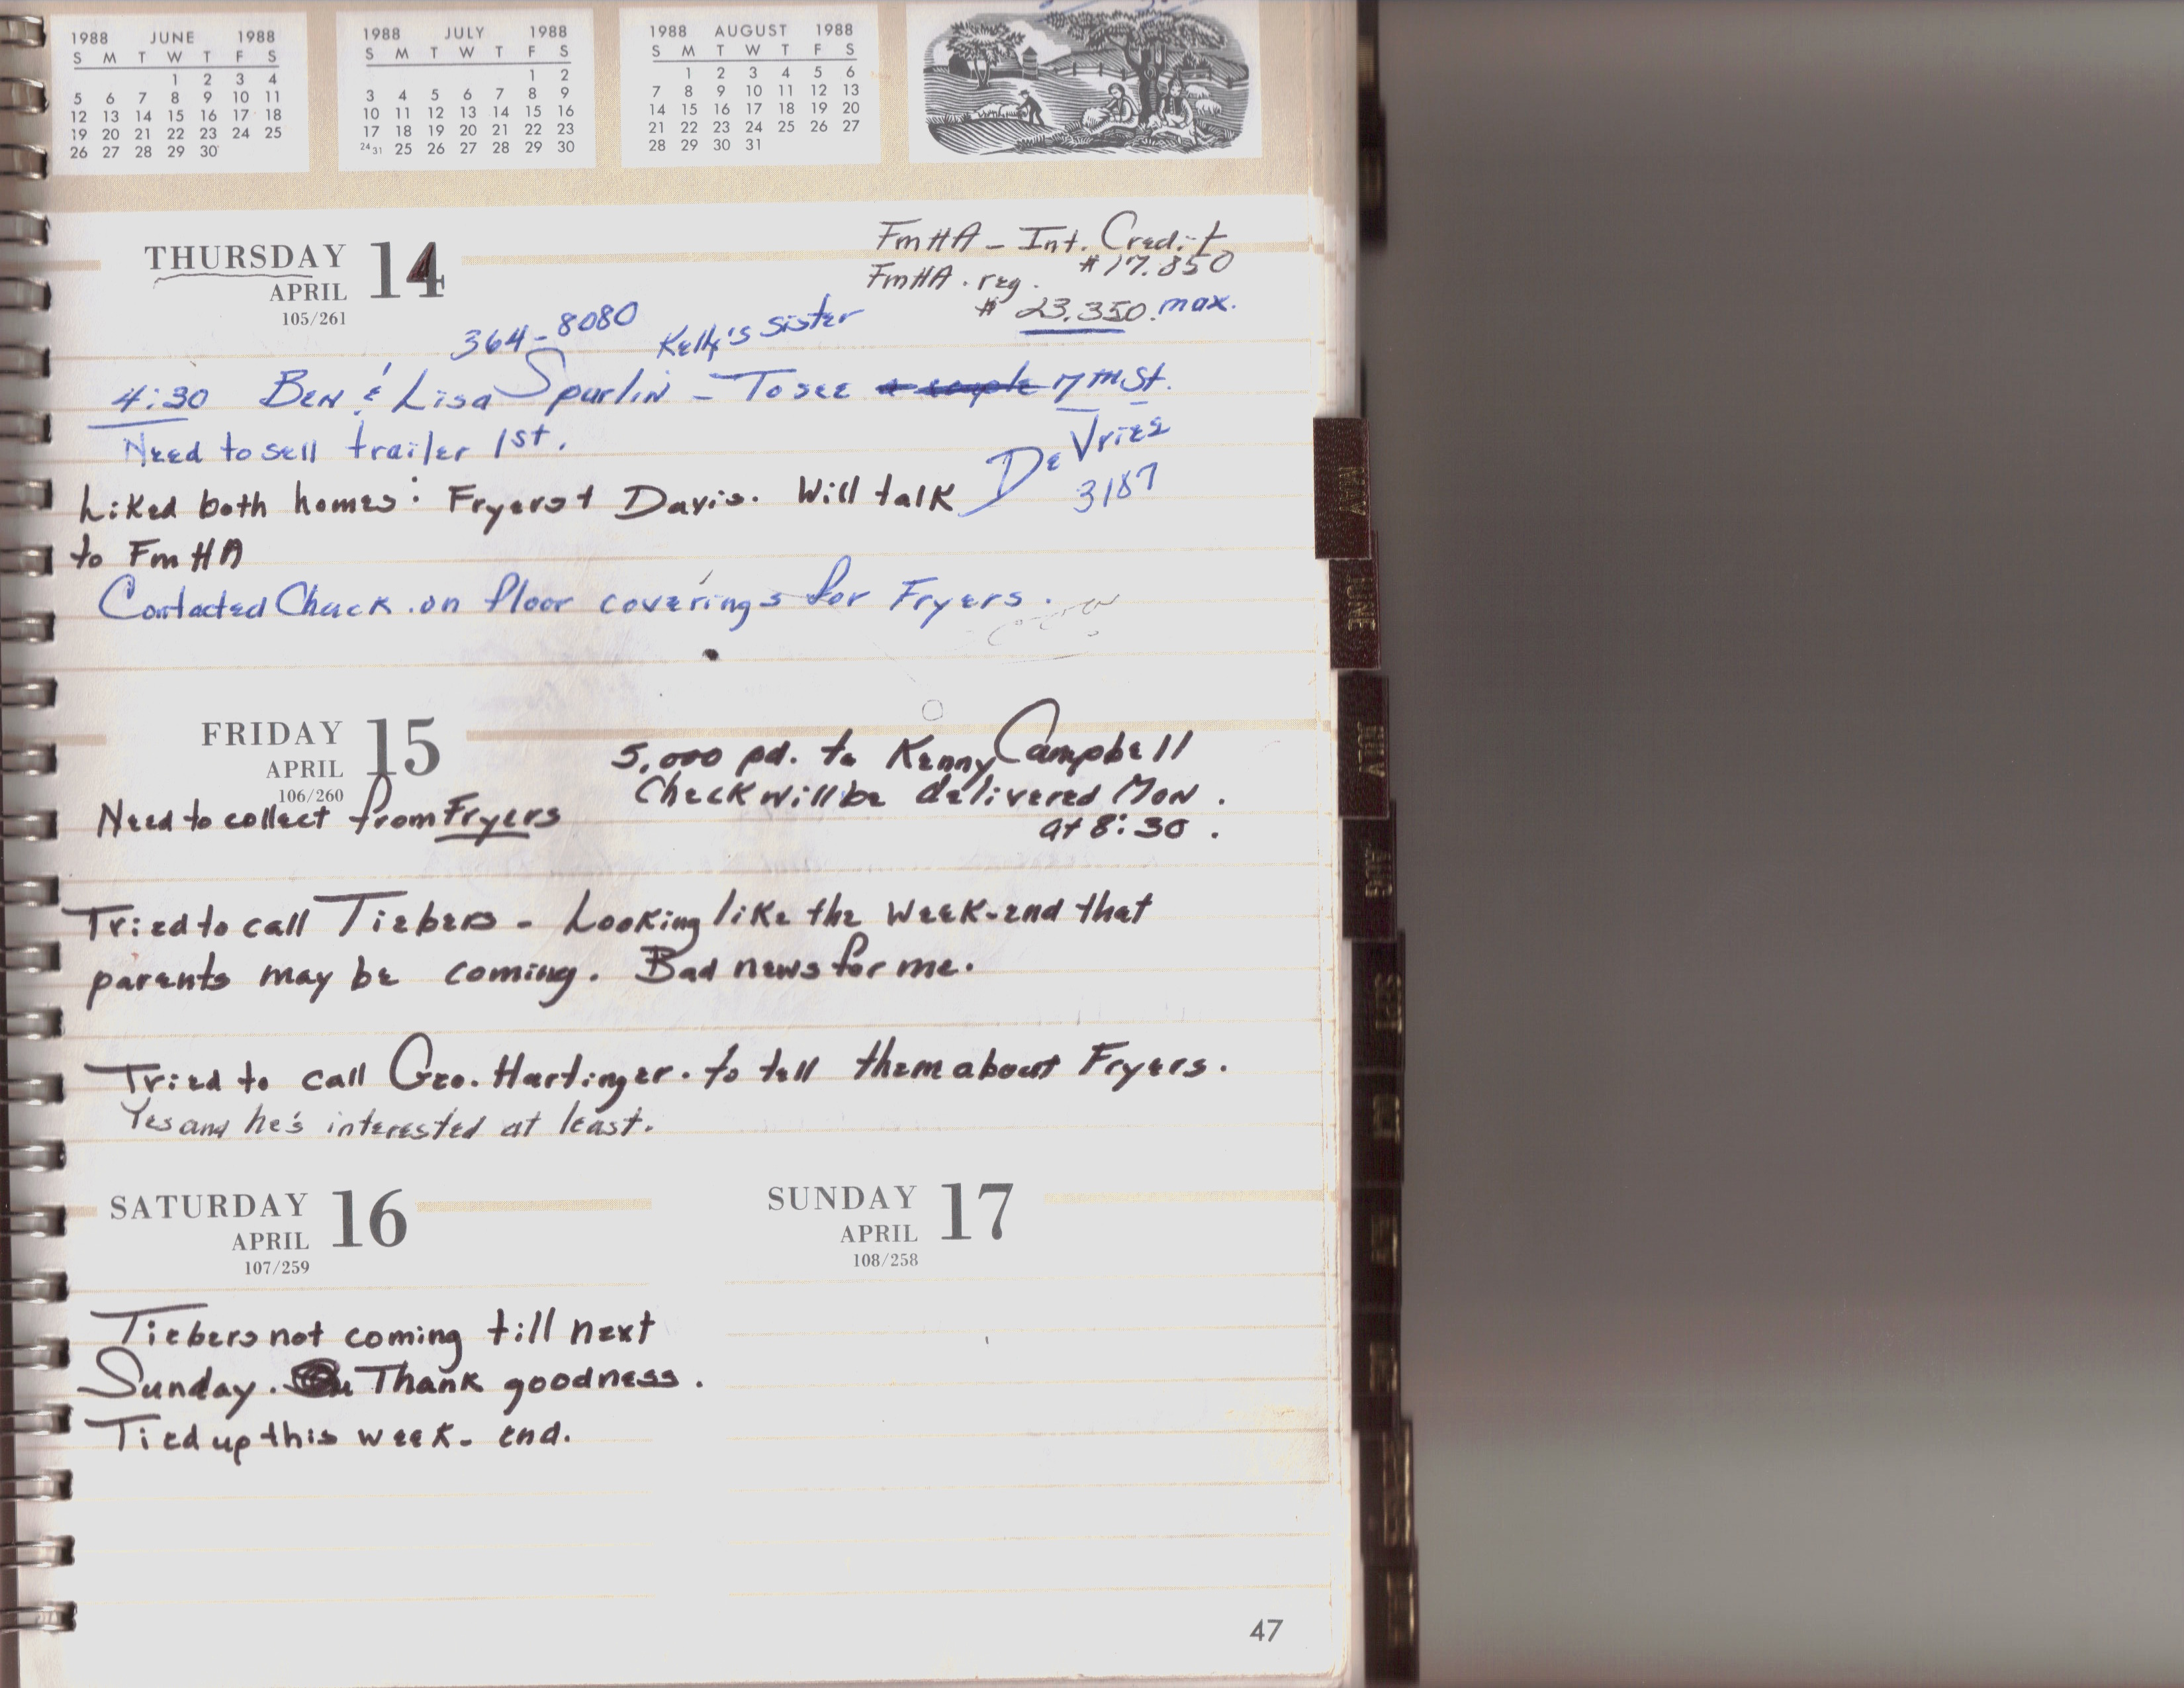 1988 JUNE 1988
S M T W T F S
1 2 3 4
5 6 7 8 9 10 11
12 13 14 15 16 17 18
19 20 21 22 23 24 25
26 27 28 29 30
1988 JULY 1988
S M T W T F S
1 2
3 4 5 6 7 8 9
10 11 12 13 14 15 16
17 18 19 20 21 22 23
24 31 25 26 27 28 29 30
1988 AUGUST 1988
S M T W T F S
1 2 3 4 5 6
7 8 9 10 11 12 13
14 15 16 17 18 19 20
21 22 23 24 25 26 27
28 29 30 31
THURSDAY 14
APRIL
105/261
FmHA - Int. Credit
$17.850
FmHA. reg.
$ 23.350. max.
364-8080 Kelly's sister
4:30 Ben & Lisa Spurlin - To see 7th St.
Need to sell trailer 1st.
DeVries
3187
Liked both homes: Fryers + Davis. Will talk
to FmHA
Contacted Chuck on floor coverings for Fryers.
FRIDAY 15
APRIL
106/260
5,000 pd. to Kenny Campbell
Check will be delivered Mon.
at 8:30.
Need to collect from Fryers
Tried to call Tiebers - Looking like the week-end that
parents may be coming. Bad news for me.
Tried to call Geo. Hartinger. to tell them about Fryers.
Yes and he's interested at least.
SATURDAY 16
APRIL
107/259
Tiebers not coming till next
Sunday. Thank goodness.
Tied up this week-end.
SUNDAY 17
APRIL
108/258
MAY
JUNE
JULY
AUG
SEPT
47